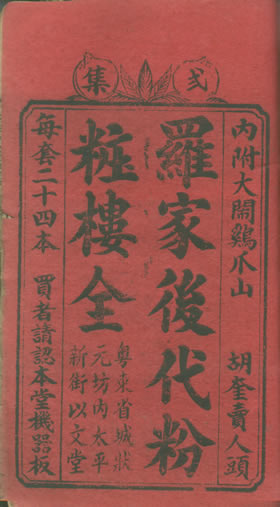 弍集
內附大鬧鷄爪山　胡奎賣人頭
羅家後代粉
粧樓全
粵東省城狀
元坊內太平
新街以文堂
每套二十四本　買者請認本堂機器板